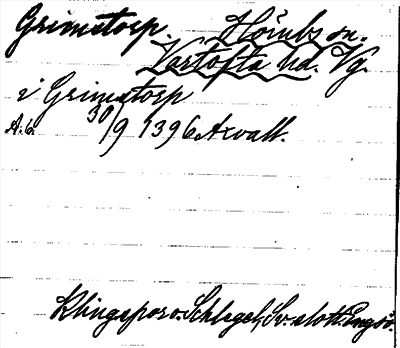 Grimstorp. Hömbs sn.
Vartofta hd. Vg.
i Grimstorp
A: b. 30/9 1396 Axvall.
Klingspor o. Schlegel, Sv. slott. Engsö.